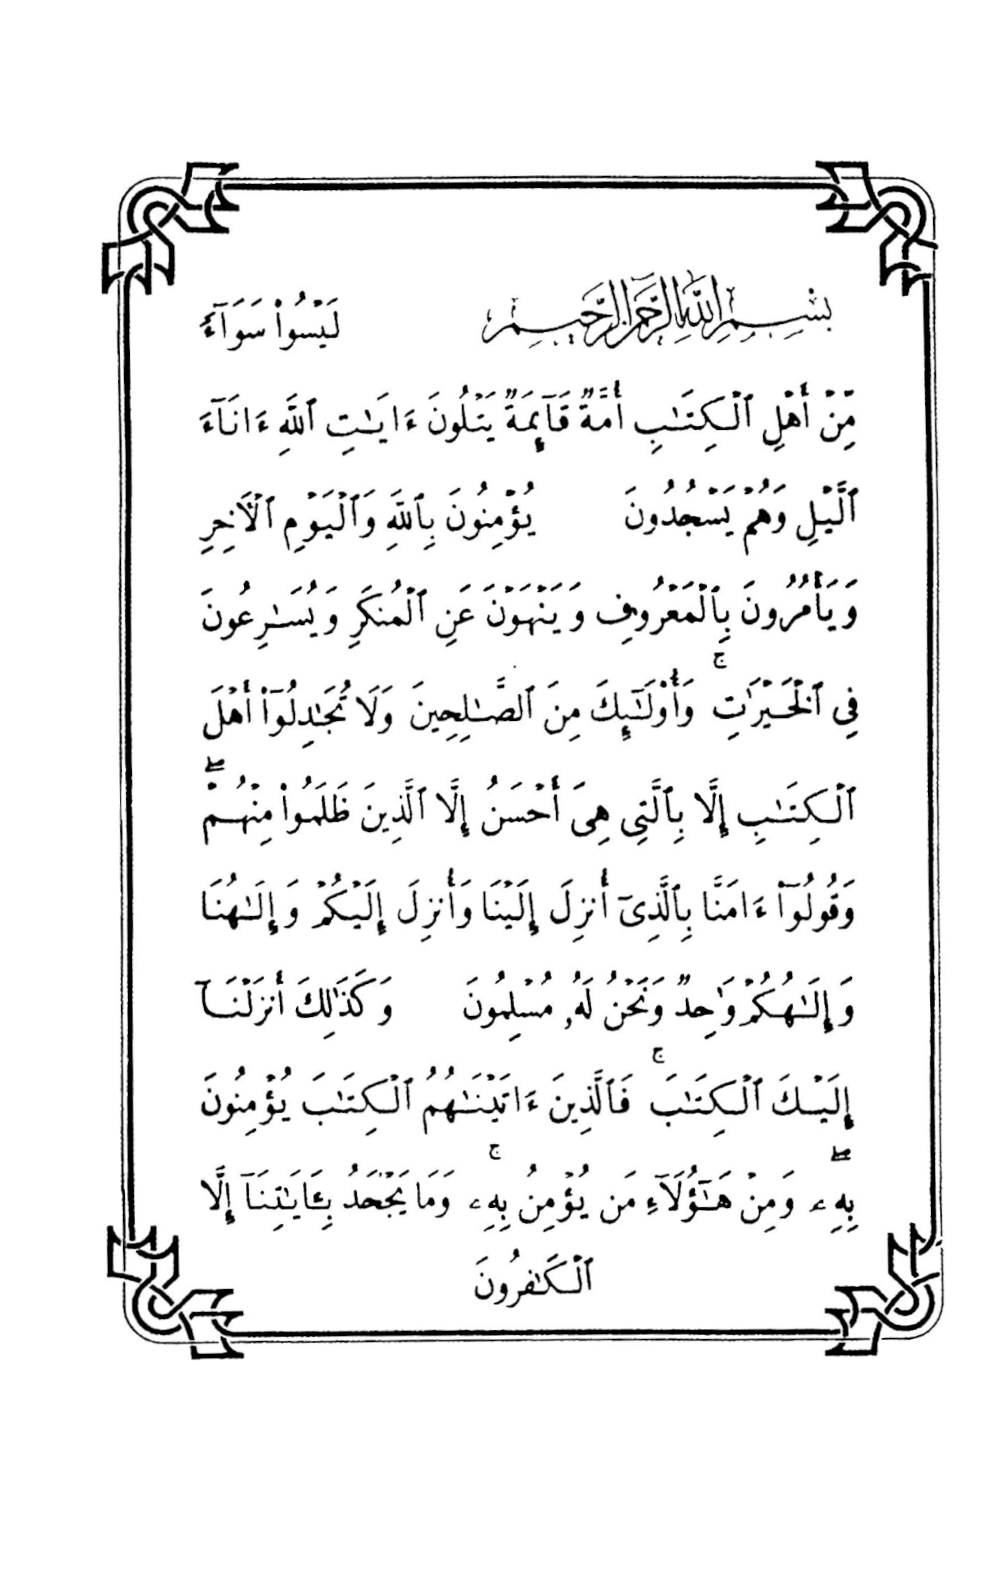 بِسْمِ ٱللَّهِ ٱلرَّحْمَٰنِ ٱلرَّحِيمِ لَيْسُوا۟ سَوَآءً
مِّنْ أَهْلِ ٱلْكِتَٰبِ أُمَّةٌ قَآئِمَةٌ يَتْلُونَ ءَايَٰتِ ٱللَّهِ ءَانَآءَ
ٱلَّيْلِ وَهُمْ يَسْجُدُونَ يُؤْمِنُونَ بِٱللَّهِ وَٱلْيَوْمِ ٱلْءَاخِرِ
وَيَأْمُرُونَ بِٱلْمَعْرُوفِ وَيَنْهَوْنَ عَنِ ٱلْمُنكَرِ وَيُسَٰرِعُونَ
فِى ٱلْخَيْرَٰتِ ۚ وَأُو۟لَٰٓئِكَ مِنَ ٱلصَّٰلِحِينَ وَلَا تُجَٰدِلُوٓا۟ أَهْلَ
ٱلْكِتَٰبِ إِلَّا بِٱلَّتِى هِىَ أَحْسَنُ إِلَّا ٱلَّذِينَ ظَلَمُوا۟ مِنْهُمْ ۖ
وَقُولُوٓا۟ ءَامَنَّا بِٱلَّذِىٓ أُنزِلَ إِلَيْنَا وَأُنزِلَ إِلَيْكُمْ وَإِلَٰهُنَا
وَإِلَٰهُكُمْ وَٰحِدٌ وَنَحْنُ لَهُۥ مُسْلِمُونَ وَكَذَٰلِكَ أَنزَلْنَآ
إِلَيْكَ ٱلْكِتَٰبَ ۚ فَٱلَّذِينَ ءَاتَيْنَٰهُمُ ٱلْكِتَٰبَ يُؤْمِنُونَ
بِهِۦ ۖ وَمِنْ هَٰٓؤُلَآءِ مَن يُؤْمِنُ بِهِۦ ۚ وَمَا يَجْحَدُ بِـَٔايَٰتِنَآ إِلَّا
ٱلْكَٰفِرُونَ